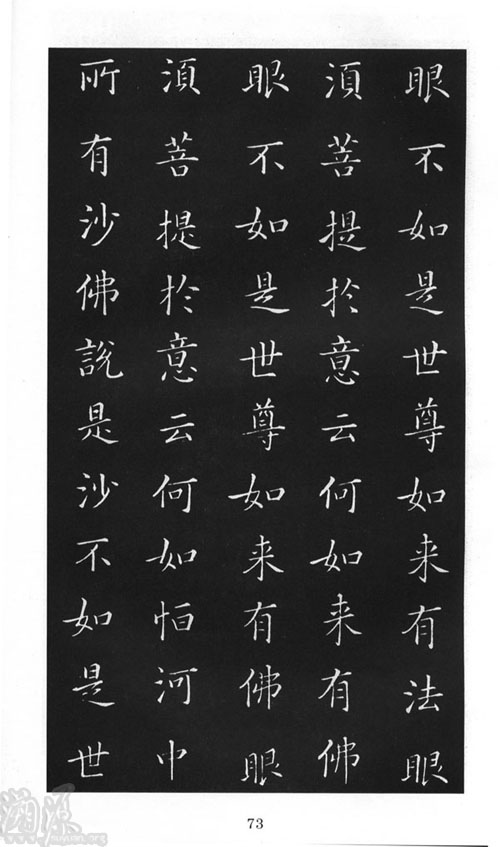 眼不如是世尊如来有法眼
湏菩提扵意云何如来有佛
眼不如是世尊如来有佛眼
湏菩提扵意云何如恒河中
所有沙佛說是沙不如是世
73